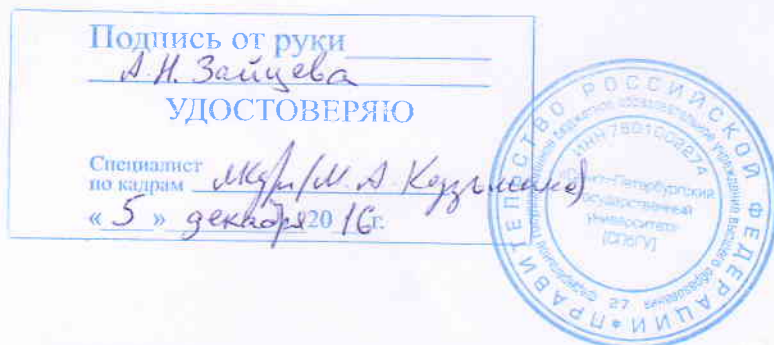 Подпись от руки
А.Н. Зайцева
УДОСТОВЕРЯЮ
Специалист
по кадрам (М.А.
« 5 » декабря 2016г.
ПРАВИТЕЛЬСТВО РОССИЙСКОЙ ФЕДЕРАЦИИ
бюджетное образовательное учреждение высшего образования
ИНН 7801002274
«Санкт-Петербургский
государственный
университет»
(СПбГУ)
27